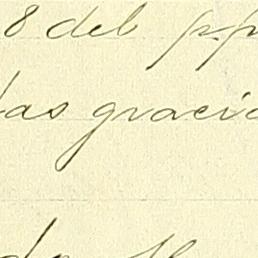 8 del p.p
las gracia